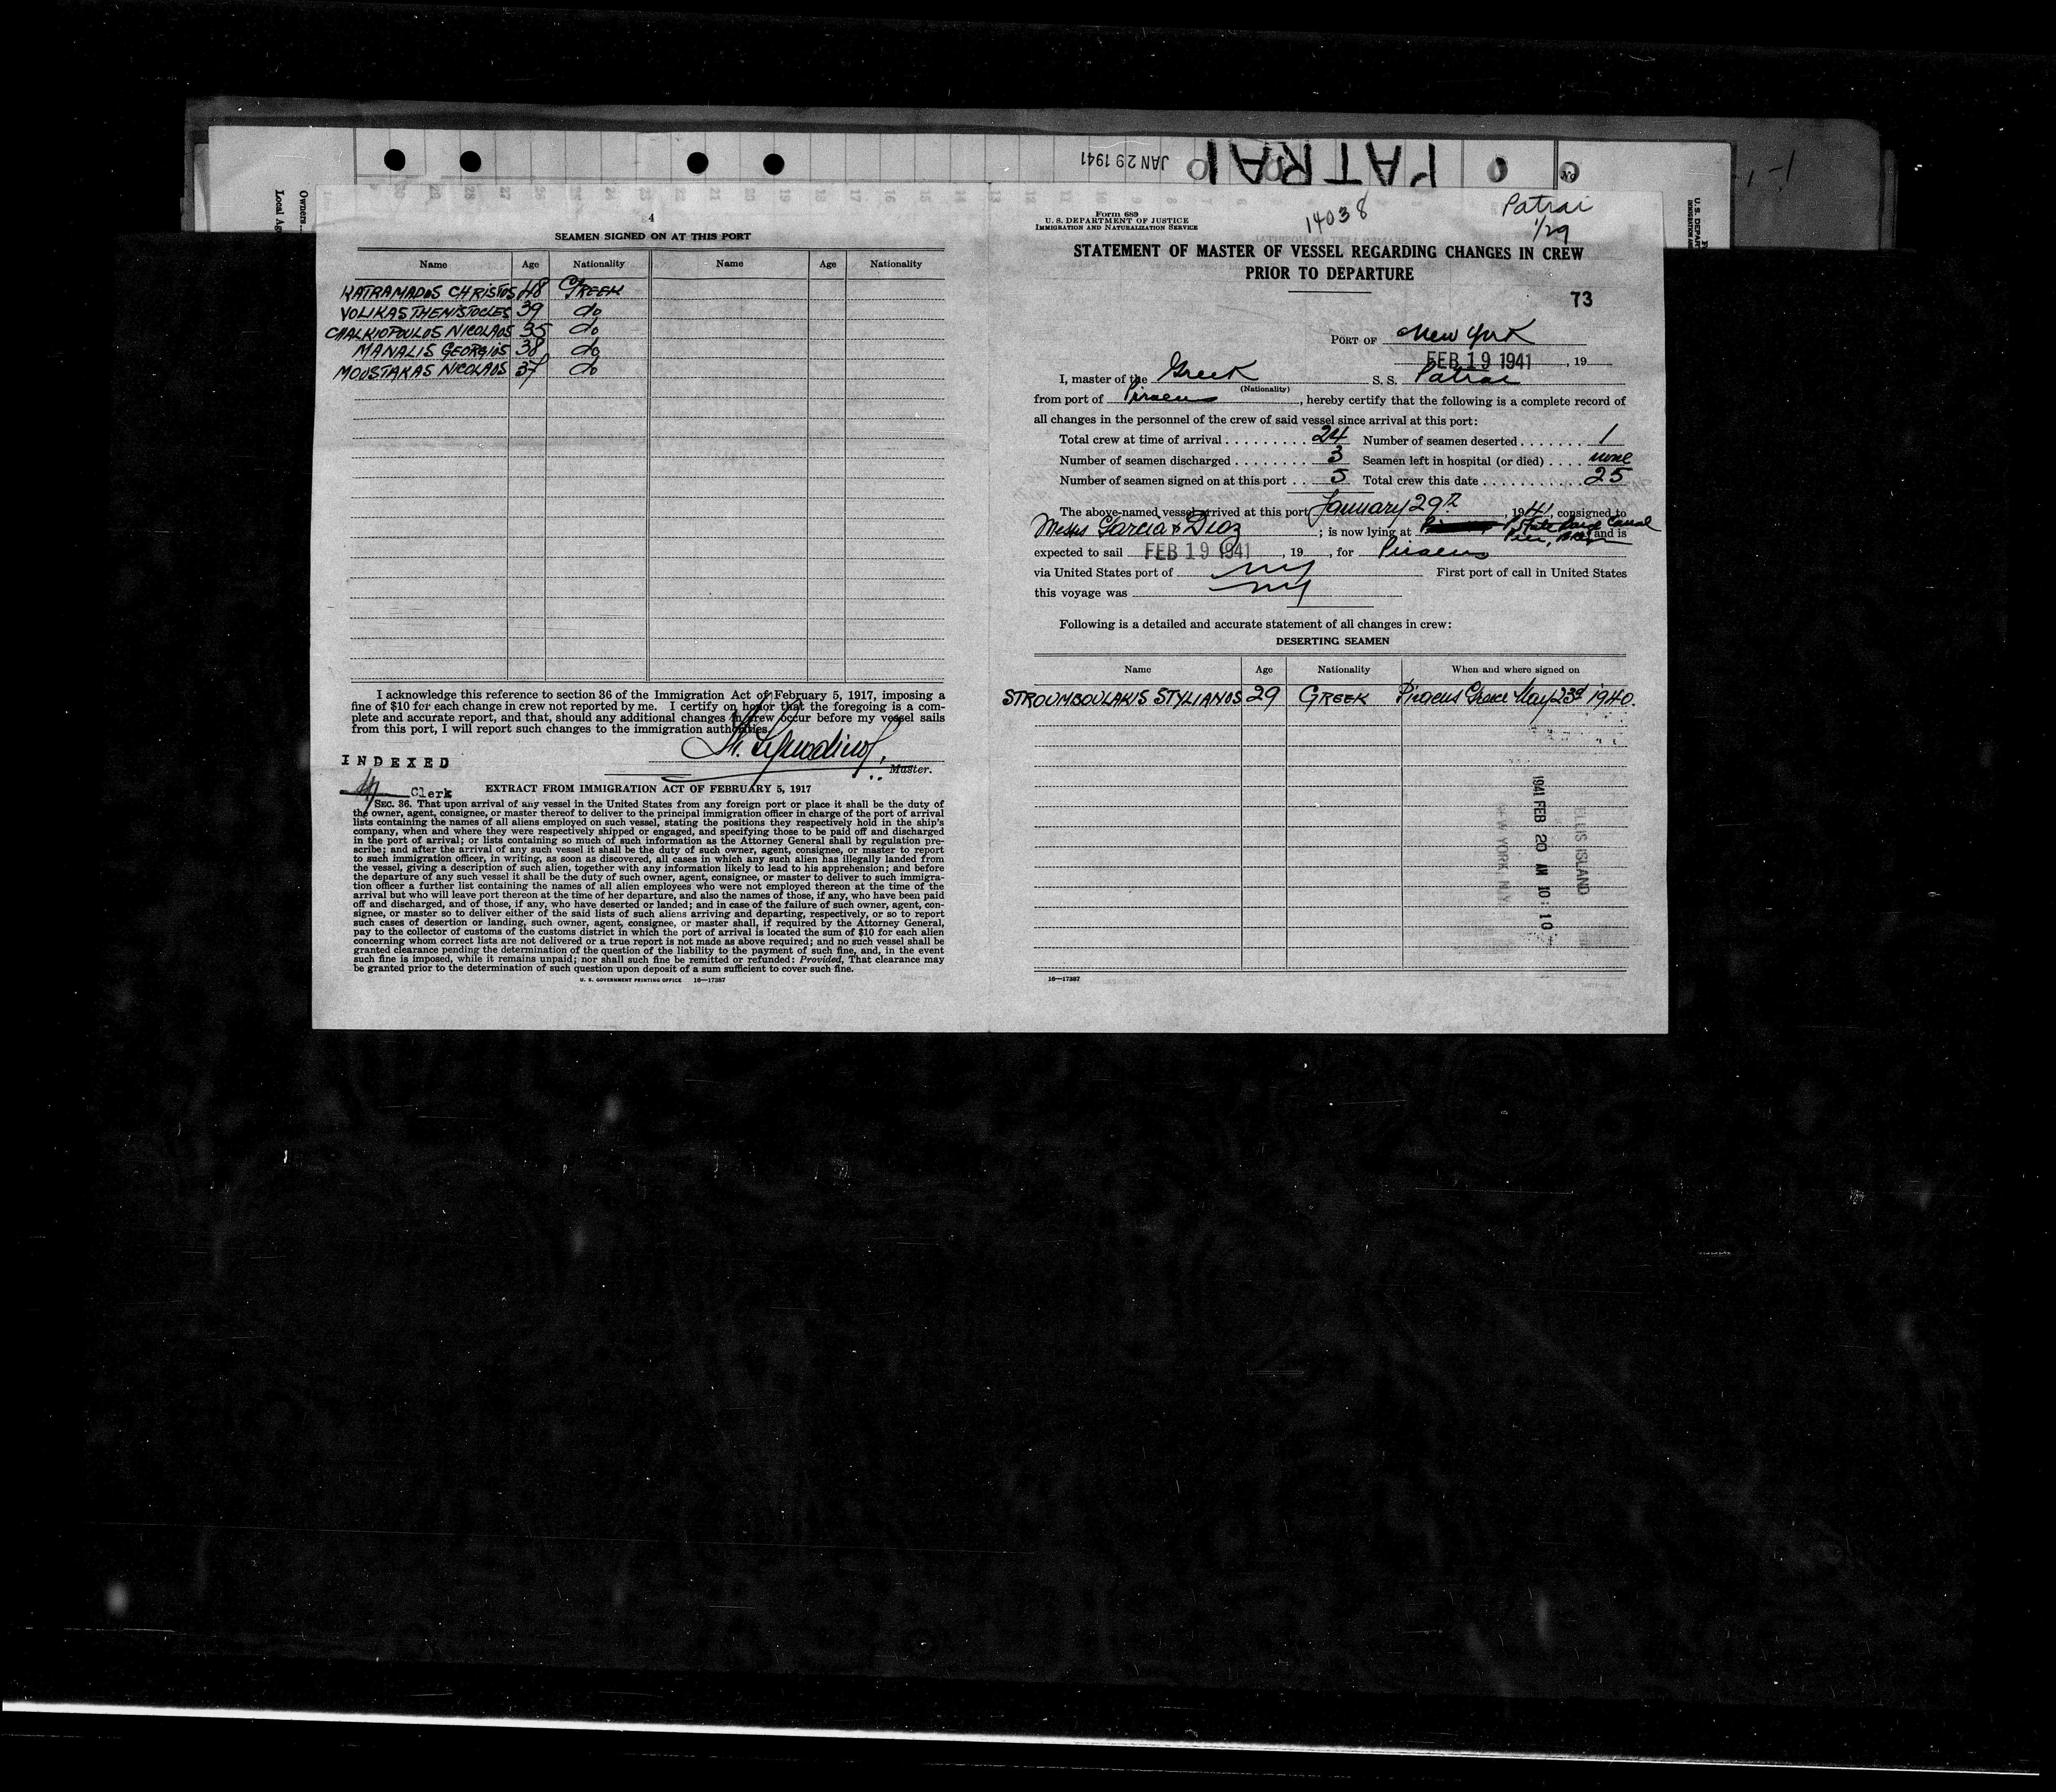 JAN 29 1941
PATRAI
No
Owners
Local Ag
U. S. DEPAR
4
SEAMEN SIGNED ON AT THIS PORT
Name Age Nationality Name Age Nationality
KATRAMADOS CHRISTOS 48 GREEK
VOLIKAS THEMISTOCLES 39 do
CHALKIOPOULOS NICOLAOS 35 do
MANALIS GEORGIOS 38 do
MOUSTAKAS NICOLAOS 37 do
I acknowledge this reference to section 36 of the Immigration Act of February 5, 1917, imposing a
fine of $10 for each change in crew not reported by me. I certify on honor that the foregoing is a com-
plete and accurate report, and that, should any additional changes in crew occur before my vessel sails
from this port, I will report such changes to the immigration authorities.
Master.
INDEXED
Clerk
EXTRACT FROM IMMIGRATION ACT OF FEBRUARY 5, 1917
SEC. 36. That upon arrival of any vessel in the United States from any foreign port or place it shall be the duty of
the owner, agent, consignee, or master thereof to deliver to the principal immigration officer in charge of the port of arrival
lists containing the names of all aliens employed on such vessel, stating the positions they respectively hold in the ship's
company, when and where they were respectively shipped or engaged, and specifying those to be paid off and discharged
in the port of arrival; or lists containing so much of such information as the Attorney General shall by regulation pre-
scribe; and after the arrival of any such vessel it shall be the duty of such owner, agent, consignee, or master to report
to such immigration officer, in writing, as soon as discovered, all cases in which any such alien has illegally landed from
the vessel, giving a description of such alien, together with any information likely to lead to his apprehension; and before
the departure of any such vessel it shall be the duty of such owner, agent, consignee, or master to deliver to such immigra-
tion officer a further list containing the names of all alien employees who were not employed thereon at the time of the
arrival but who will leave port thereon at the time of her departure, and also the names of those, if any, who have been paid
off and discharged, and of those, if any, who have deserted or landed; and in case of the failure of such owner, agent, con-
signee, or master so to deliver either of the said lists of such aliens arriving and departing, respectively, or so to report
such cases of desertion or landing, such owner, agent, consignee, or master shall, if required by the Attorney General,
pay to the collector of customs of the customs district in which the port of arrival is located the sum of $10 for each alien
concerning whom correct lists are not delivered or a true report is not made as above required; and no such vessel shall be
granted clearance pending the determination of the question of the liability to the payment of such fine, and, in the event
such fine is imposed, while it remains unpaid; nor shall such fine be remitted or refunded: Provided, That clearance may
be granted prior to the determination of such question upon deposit of a sum sufficient to cover such fine.
U. S. GOVERNMENT PRINTING OFFICE 16—17387
Form 689
U. S. DEPARTMENT OF JUSTICE
IMMIGRATION AND NATURALIZATION SERVICE
14038
Patrai
1/29
STATEMENT OF MASTER OF VESSEL REGARDING CHANGES IN CREW
PRIOR TO DEPARTURE
73
PORT OF New York
FEB 19 1941, 19
I, master of the Greek S. S. Patrai
(Nationality)
from port of Piraeus, hereby certify that the following is a complete record of
all changes in the personnel of the crew of said vessel since arrival at this port:
Total crew at time of arrival 24 Number of seamen deserted 1
Number of seamen discharged 3 Seamen left in hospital (or died) none
Number of seamen signed on at this port 5 Total crew this date 25
The above-named vessel arrived at this port January 29th, 1941, consigned to
Messrs Garcia & Diaz; is now lying at State Barge Canal
Pier, and is
expected to sail FEB 19 1941, 19, for Piraeus
via United States port of NY First port of call in United States
this voyage was NY
Following is a detailed and accurate statement of all changes in crew:
DESERTING SEAMEN
Name Age Nationality When and where signed on
STROUMBOULAKIS STYLIANOS 29 GREEK Piraeus Greece May 23d 1940.
ELLIS ISLAND
1941 FEB 20 AM 10:10
NEW YORK, N.Y.
16—17387